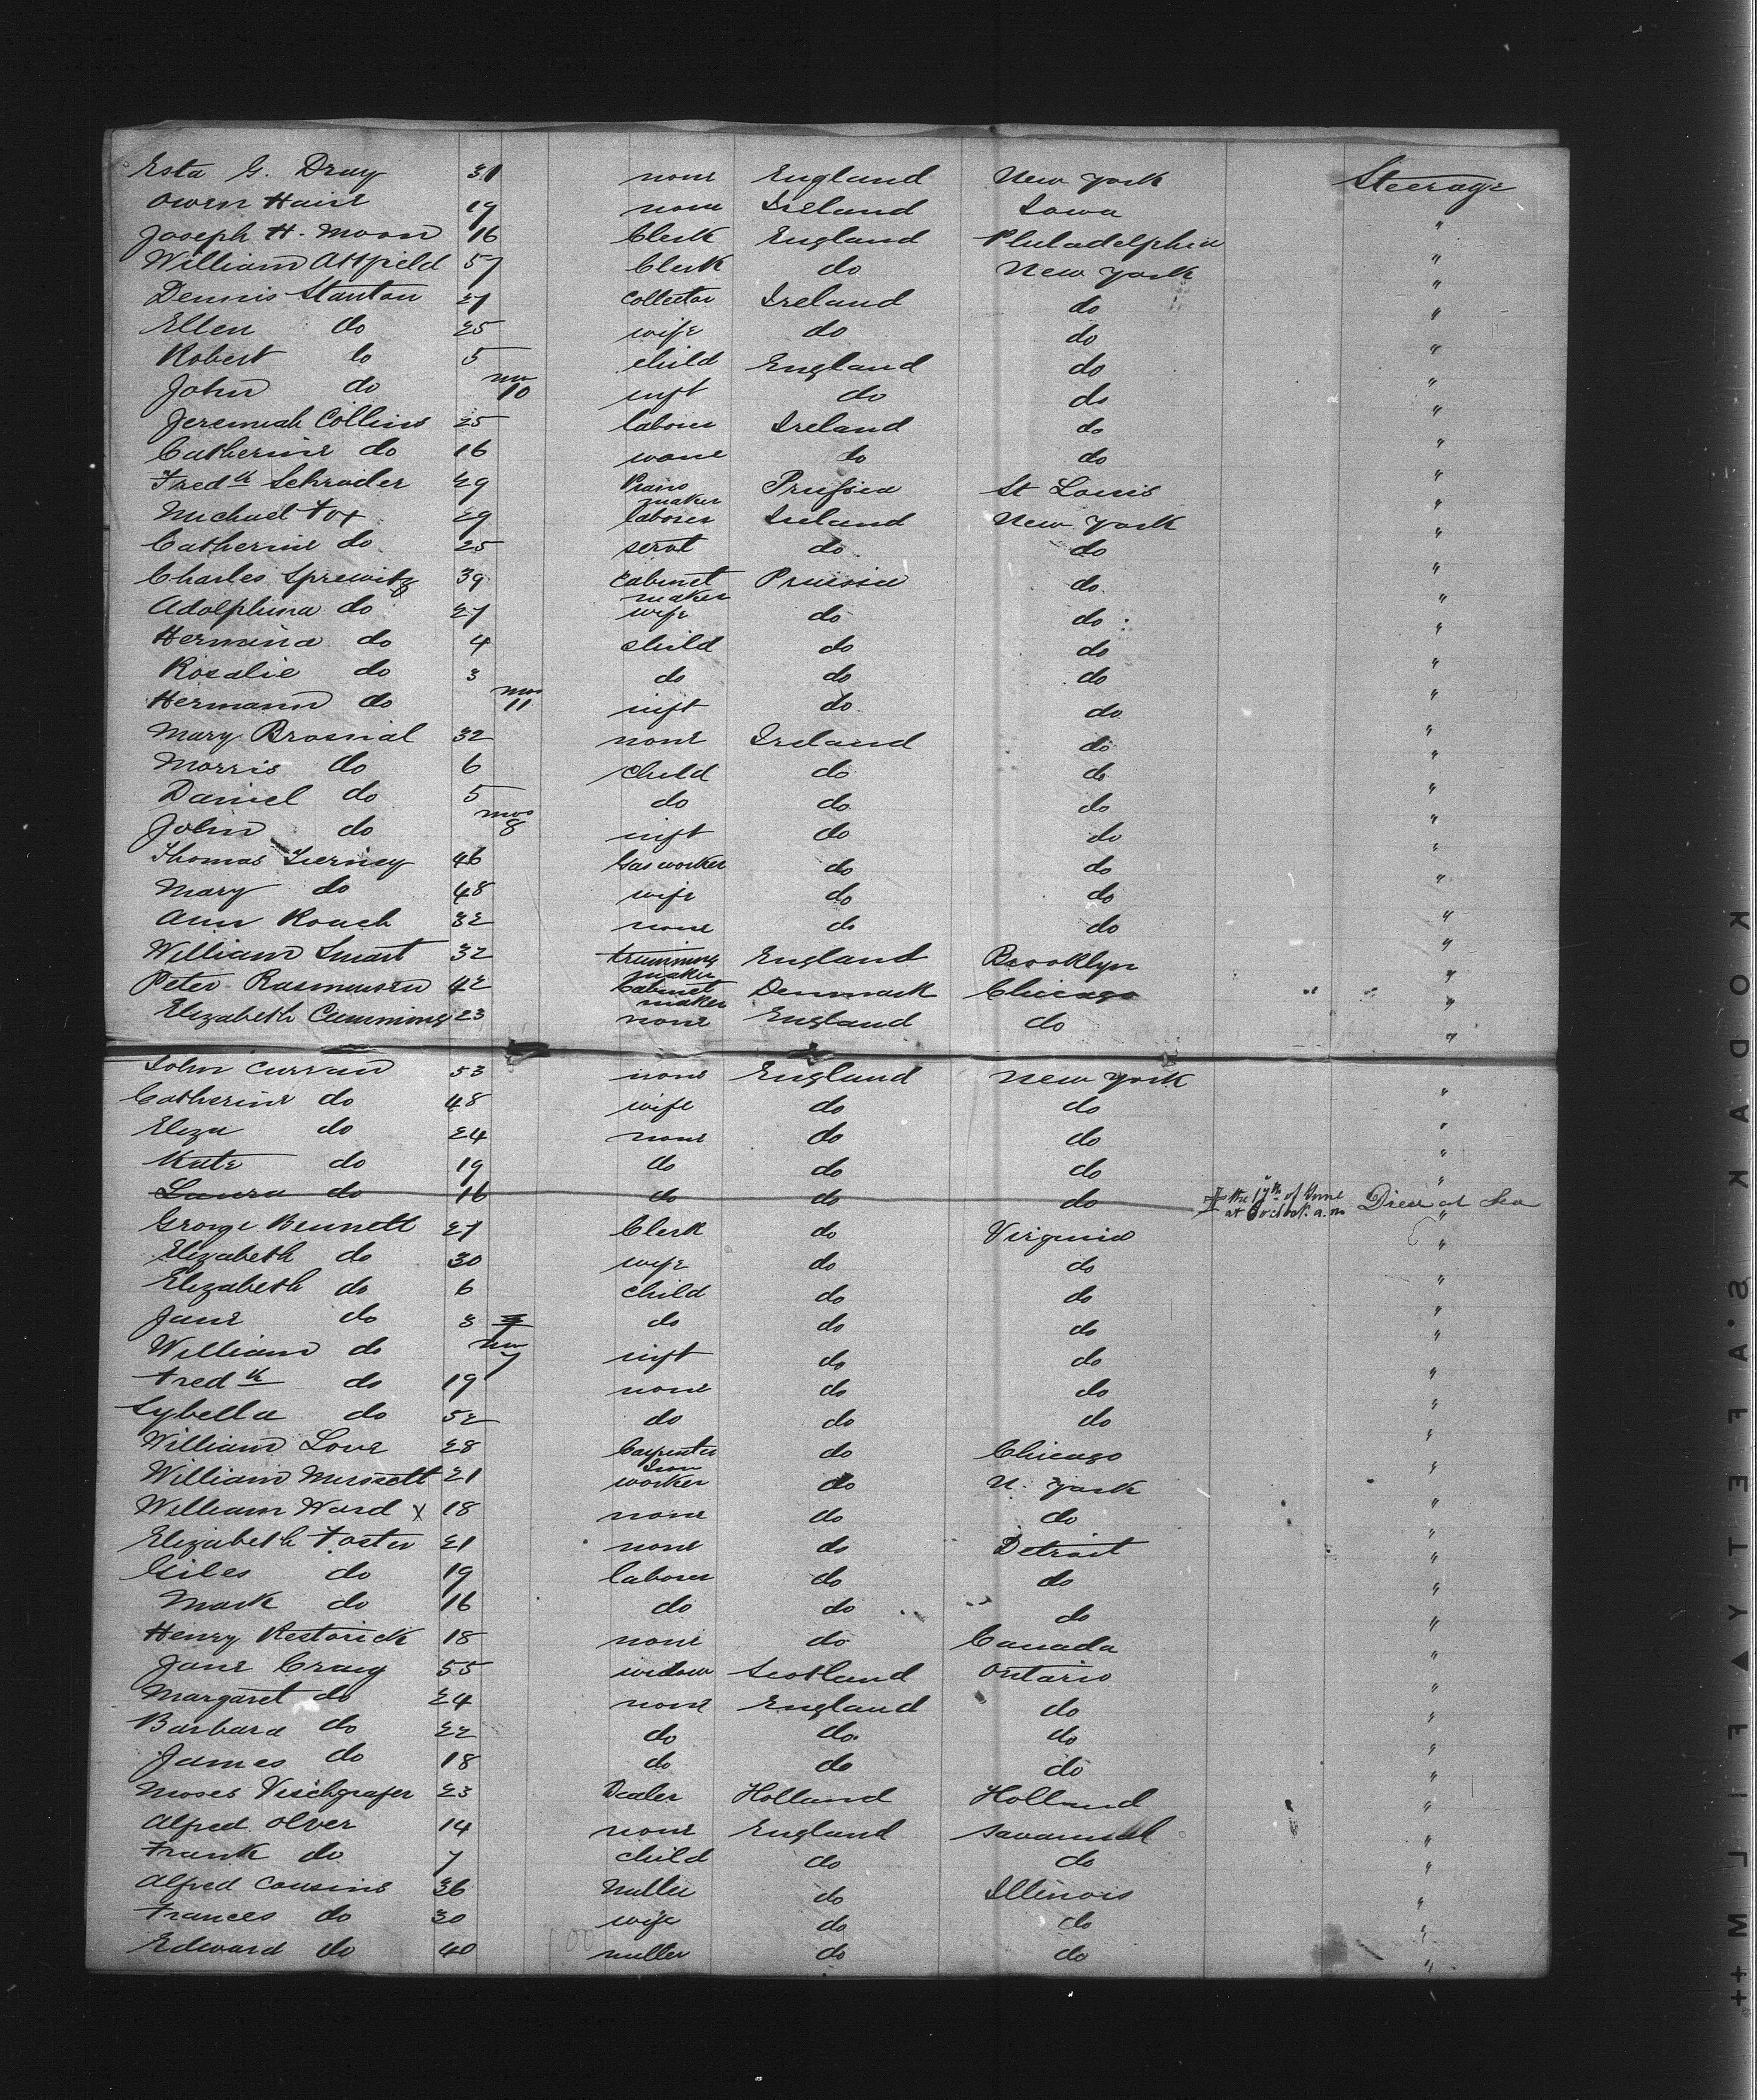 Esta G. Dray 31 none England New York Steerage
Owen Haire 19 none Ireland Iowa "
Joseph H. Moon 16 Clerk England Philadelphia "
William Attfield 57 Clerk do New York "
Dennis Stanton 27 Collector Ireland do "
Ellen do 25 wife do do "
Robert do 5 child England do "
John do mos 10 inft do do "
Jeremiah Collins 25 laborer Ireland do "
Catherine do 16 none do do "
Fredk Schrader 29 Piano maker Prussia St Louis "
Michael Fox 29 laborer Ireland New York "
Catherine do 25 servt do do "
Charles Sprewitz 39 Cabinet maker Prussia do "
Adolphina do 27 wife do do "
Hermina do 4 child do do "
Rosalie do 3 do do do "
Hermann do mos 11 inft do do "
Mary Brosnal 32 none Ireland do "
Morris do 6 child do do "
Daniel do 5 do do do "
John do mos 8 inft do do "
Thomas Tierney 46 Gas worker do do "
Mary do 48 wife do do "
Ann Roach 32 none do do "
William Smart 32 trimming maker England Brooklyn "
Peter Rasmussen 42 Cabinet maker Denmark Chicago "
Elizabeth Cummings 23 none England do "
John Curran 53 none England New York "
Catherine do 48 wife do do "
Eliza do 24 none do do "
Kate do 19 do do do "
Laura do 16 do do do the 17th of June at 6 o'clock a.m Died at Sea "
George Bennett 27 Clerk do Virginia "
Elizabeth do 30 wife do do "
Elizabeth do 6 child do do "
Jane do 3 do do do "
William do mos 7 inft do do "
Fredk do 19 none do do "
Sybella do 52 do do do "
William Love 28 Carpenter do Chicago "
William Mussett 21 Iron worker do N. York "
William Ward x 18 none do do "
Elizabeth Foster 21 none do Detroit "
Giles do 19 laborer do do "
Mark do 16 do do do "
Henry Restorick 18 none do Canada "
Jane Craig 55 widow Scotland Ontario "
Margaret do 24 none England do "
Barbara do 22 do do do "
James do 18 do do do "
Moses Vischgrafer 23 Dealer Holland Holland "
Alfred Olver 14 none England Savannah "
Frank do 7 child do do "
Alfred Cousins 36 Miller do Illinois "
Frances do 30 wife do do "
Edward do 40 miller do do "
KODAK · S'AFETY ▲ FILM ++